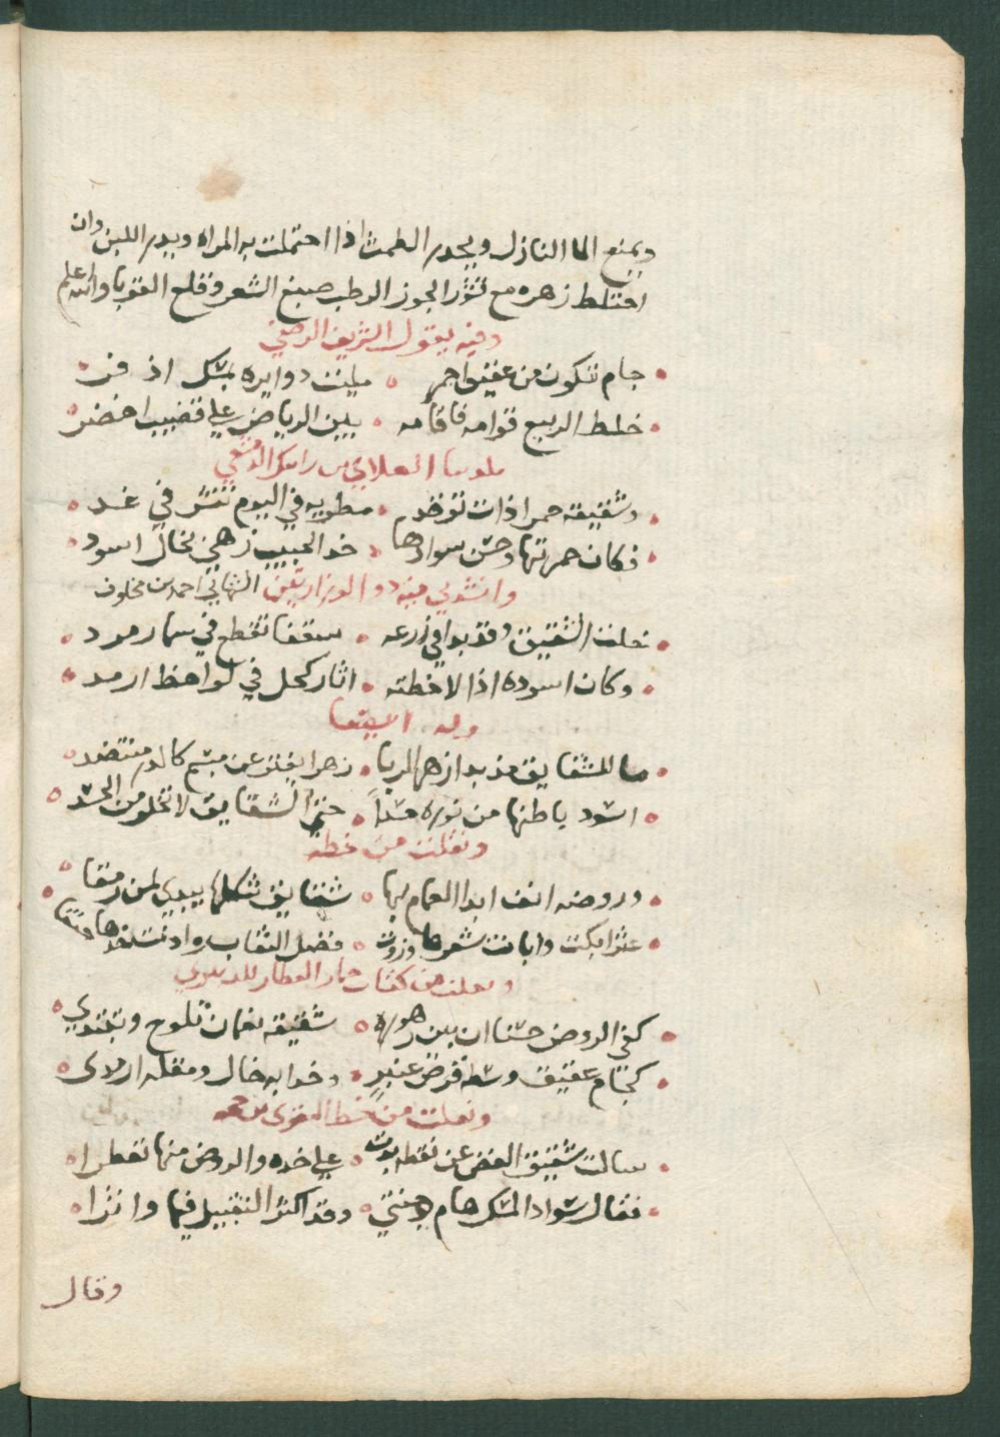 ويمنع الما النازل ويحدر الطمث اذا احتملت به المراه ويدر اللبن وان
اختلط زهره مع قشور الجوز الرطب صبغ الشعر وقلع القوبا والله اعلم
وفيه يقول الشريف الرضي
جام تكون من عقيق احمر • مليت دوايره بمسك اذفر
خلط الربيع قوامه فاقامه • بين الرياض علي قضيب اخضر
العلاي الدمشقي
وشقيقه حمرا ذات توقد • مطويه في اليوم تنشر في غد
فكان حمرتها وحسن سوادها • خد الحبيب زهي بخال اسود
وانشدني فيه ذو الوزارتين الشهابي احمد بن مخلوف
خلت الشقيق وقد بدا في زرعه • سقفا تقطع في سما
وكان اسوده اذا لاحظته • اثار كحل في لواحظ ارمد
وله ايضا
ما للشقايق مذ بدا زهر الربا • زهرا يفتر عن مبسم كالدر منتضد
اسود باطنها من نوره حسدا • حتي الشقايق لا تخلو من الحسد
ونقلت من خطه
وروضه انف ابدا الغمام بها • شقايق شكلها يبدي لمن رمقا
بكت وابانت شعرها • فضل النقاب
ونقلت من كتاب العطار
كفي الروض حسنا ان بين زهوره • شقيقه نعمان تلوح وتغتدي
كجام عقيق وسطه قرض عنبر • وخد به خال ومقله ارمد
ونقلت من خط
سالت شقيق الغض عن نقطه بدت • علي خده والروض منها تعطرا
فقال سواد المسك هام بوجنتي • وقد اكثر التقبيل فيها واثرا
وقال